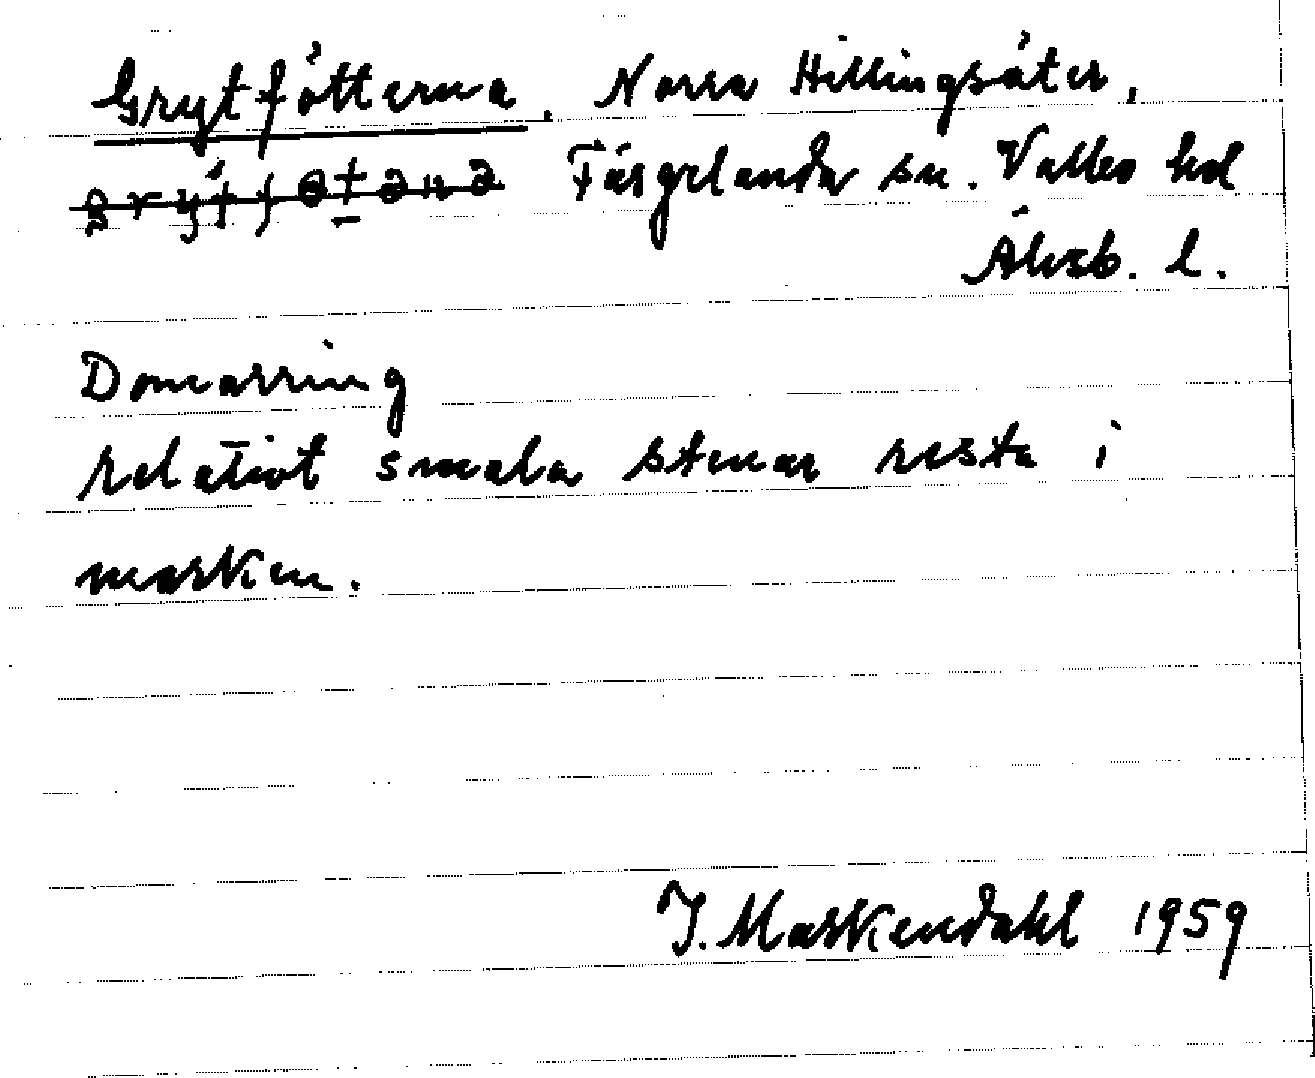 Grytfötterna. Norra Hillingsäter,
Färgelanda sn. Valbo hd
Älvsb. l.
Domarring
relativt smala stenar resta i
marken.
J. Markendahl 1959